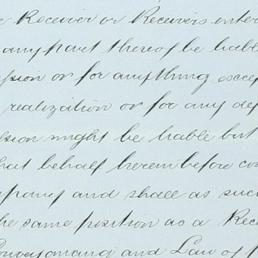 Receiver or Receivers enter
any part thereof be liable
ssion or for anything excep
realization or for any def
ssion might be liable but
hat behalf herein before con
pany and shall as suc
he same position as a Rece
Conveyancing and Law of P